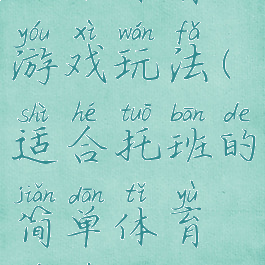 yóu xì wán fǎ
游戏玩法(
shì hé tuō bān de
适合托班的
jiǎn dān tǐ yù
简单体育